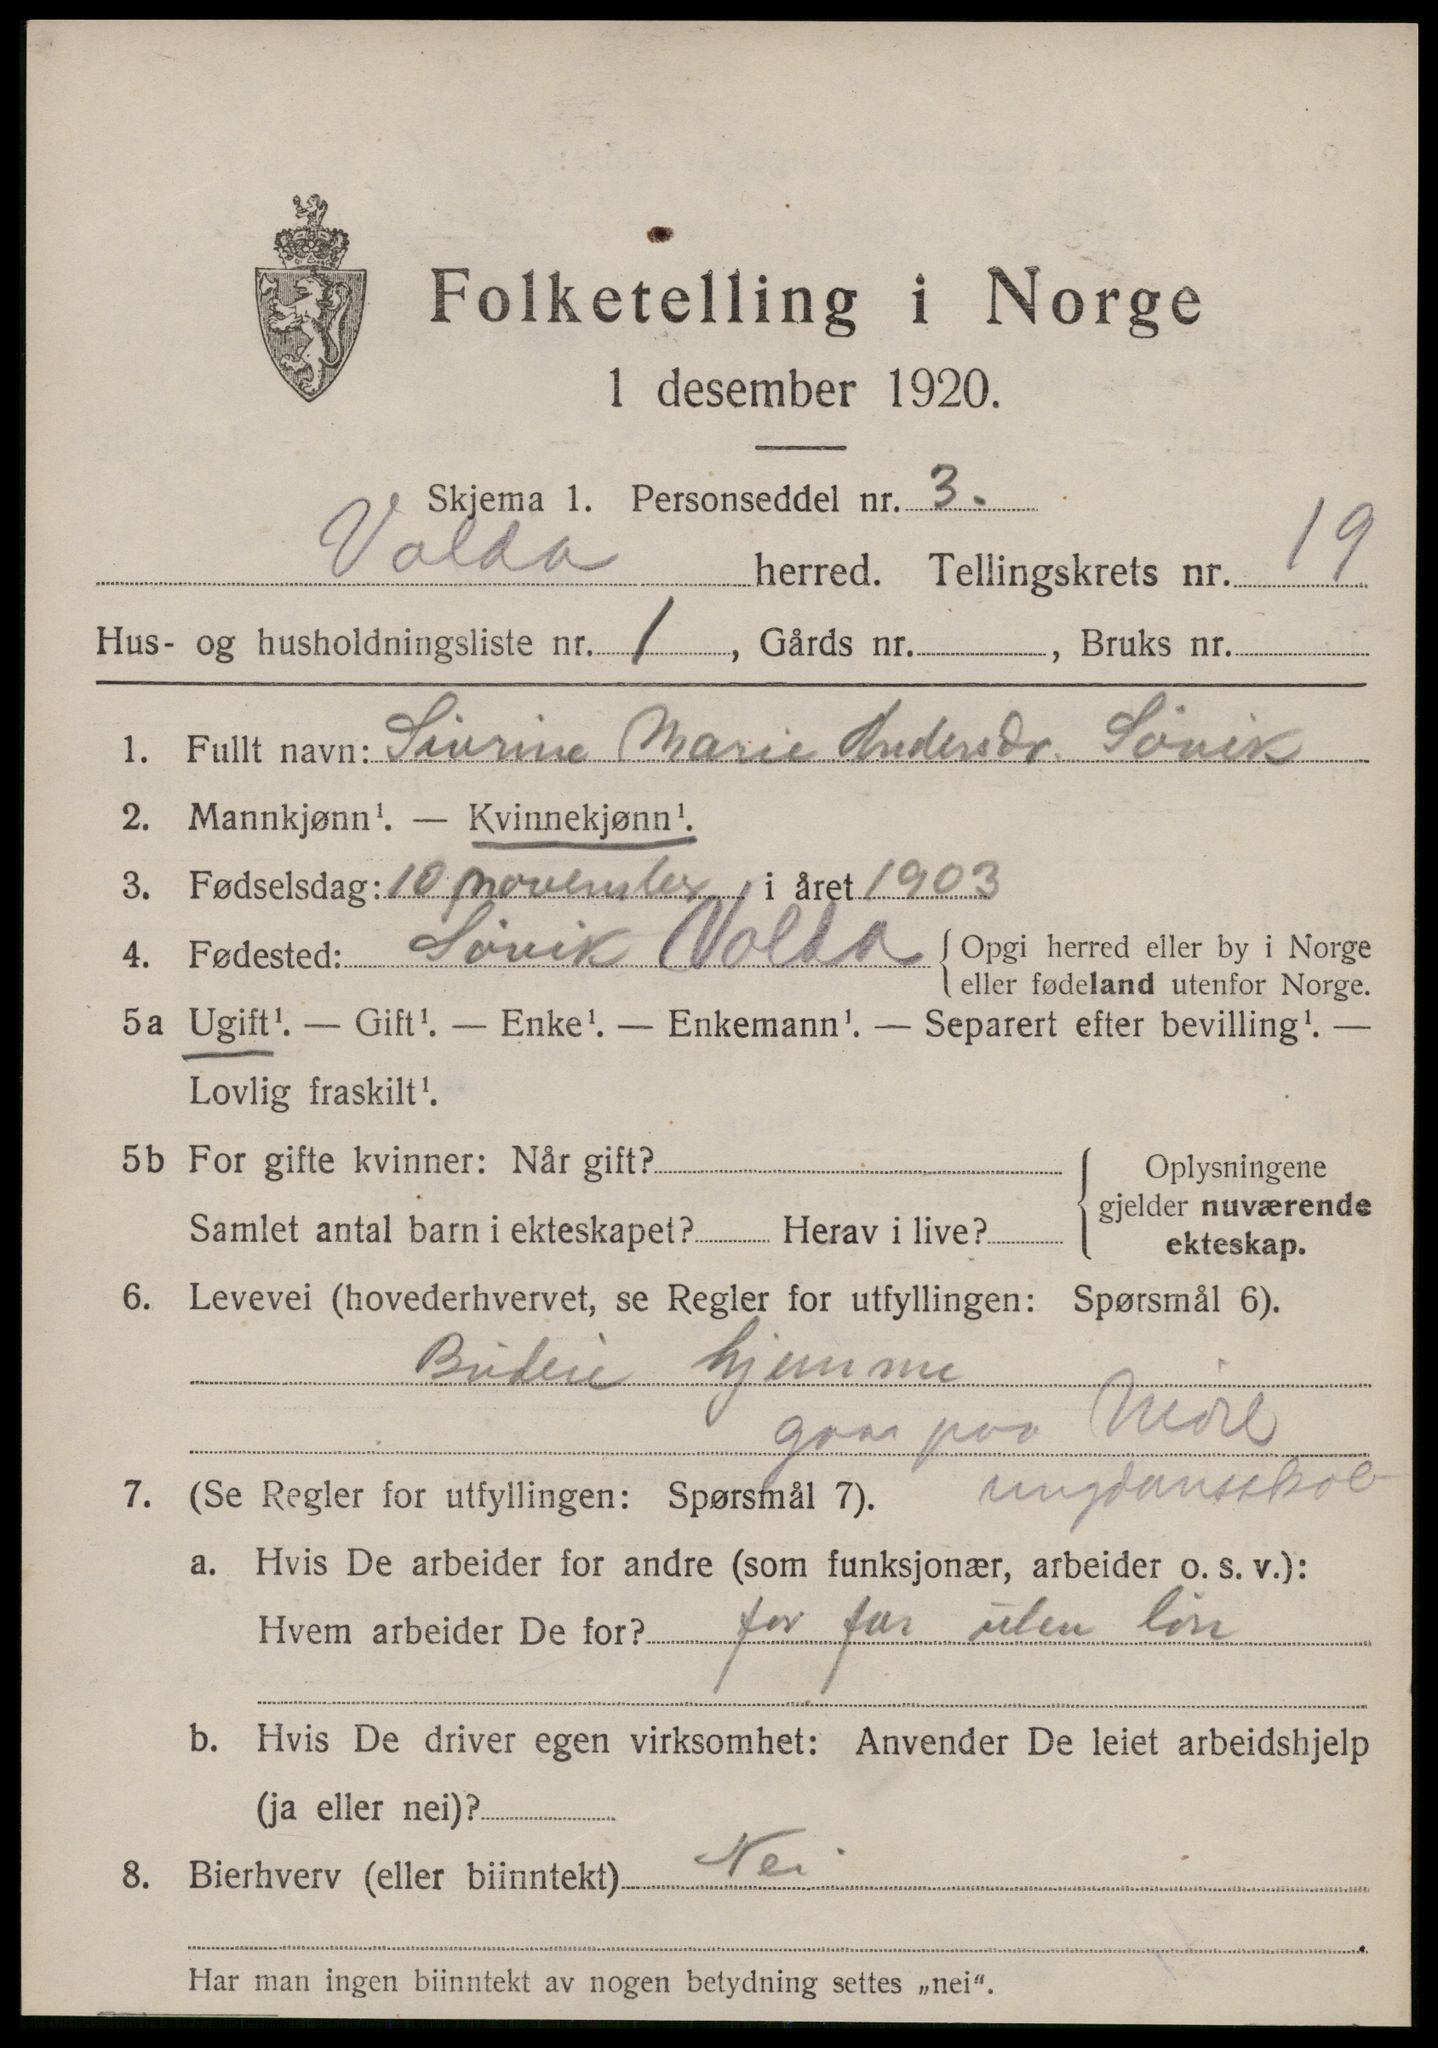 Folketelling i Norge
1 desember 1920.
Skjema 1. Personseddel nr. 3.
Volda herred. Tellingskrets nr. 19
Hus- og husholdningsliste nr. 1, Gårds nr. , Bruks nr.
1. Fullt navn: Sivrine Marie Andersdr. Sövik
2. Mannkjønn¹. — Kvinnekjønn¹.
3. Fødselsdag: 10 november i året 1903
4. Fødested: Sövik Volda { Opgi herred eller by i Norge
eller fødeland utenfor Norge.
5a Ugift¹. — Gift¹. — Enke¹. — Enkemann¹. — Separert efter bevilling¹. —
Lovlig fraskilt¹.
5b For gifte kvinner: Når gift?
Samlet antal barn i ekteskapet? Herav i live?
{ Oplysningene
gjelder nuværende
ekteskap.
6. Levevei (hovederhvervet, se Regler for utfyllingen: Spørsmål 6).
Budeie hjemme
gaar paa Möre
ungdomsskole
7. (Se Regler for utfyllingen: Spørsmål 7).
a. Hvis De arbeider for andre (som funksjonær, arbeider o. s. v.):
Hvem arbeider De for? for far uten lön
b. Hvis De driver egen virksomhet: Anvender De leiet arbeidshjelp
(ja eller nei)?
8. Bierhverv (eller biinntekt) Nei
Har man ingen biinntekt av nogen betydning settes „nei“.